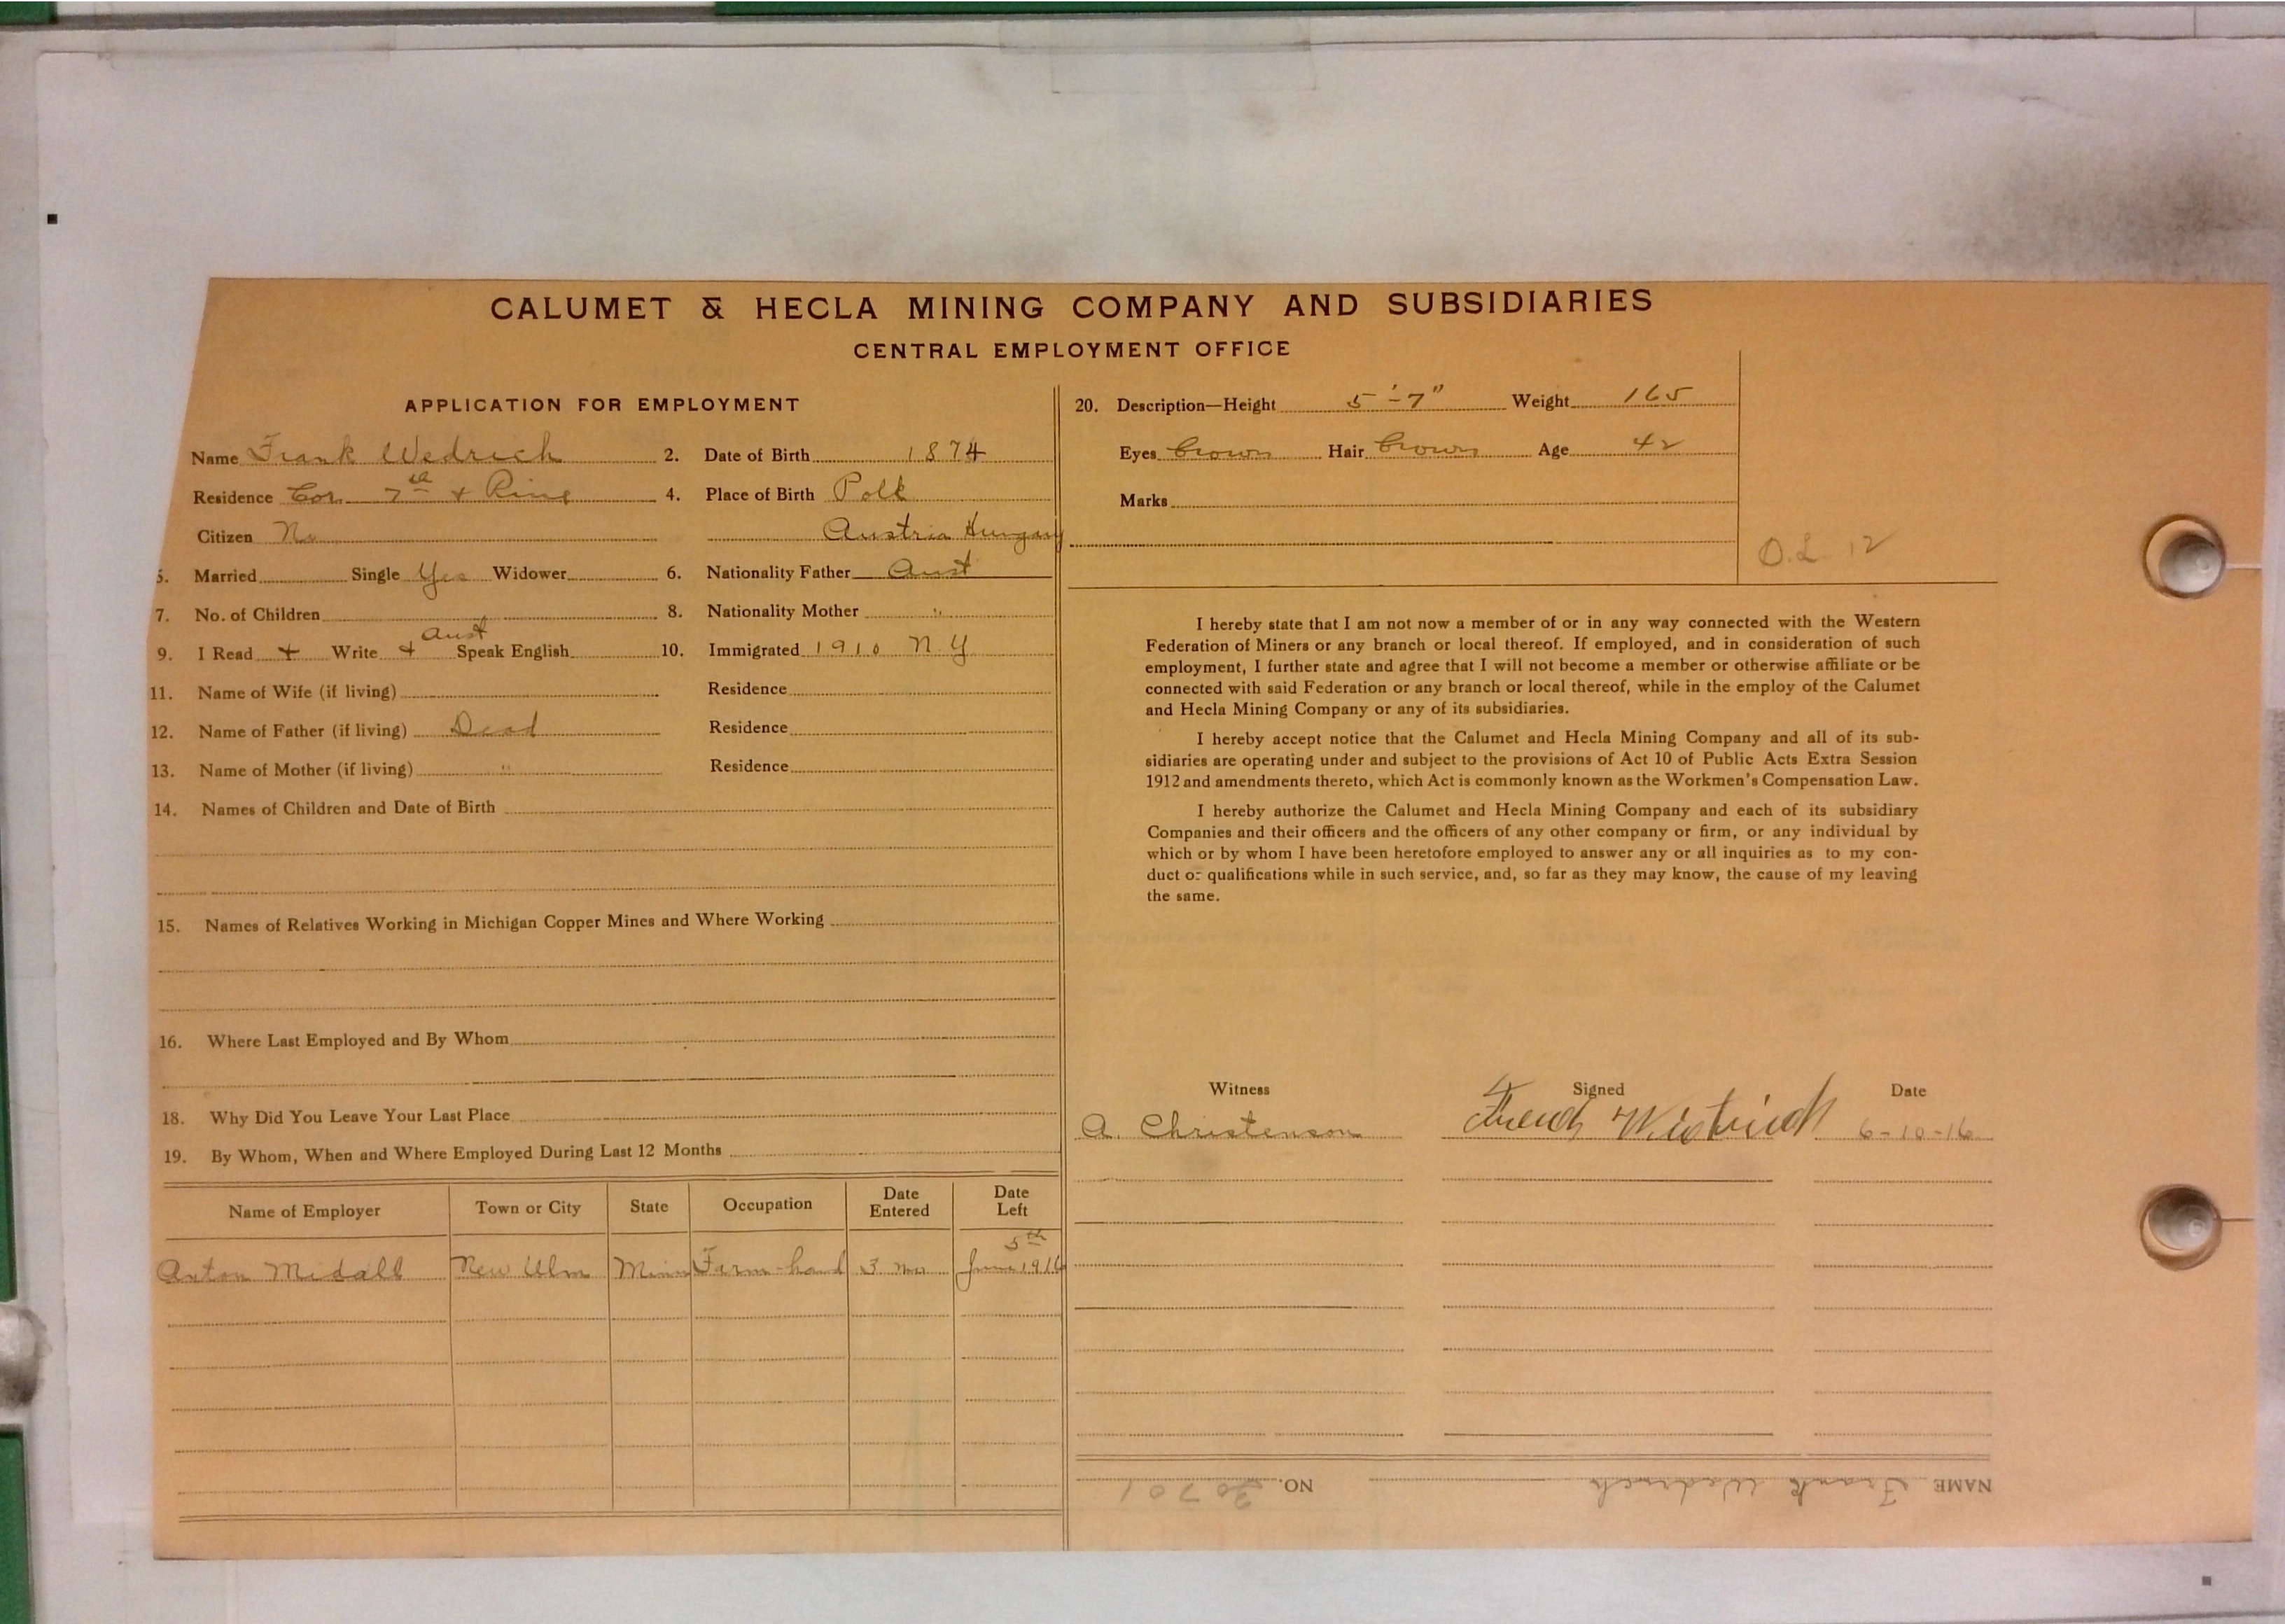 CALUMET & HECLA MINING COMPANY AND SUBSIDIARIES
CENTRAL EMPLOYMENT OFFICE
APPLICATION FOR EMPLOYMENT
Name Frank Wedrich 2. Date of Birth 1874
Residence Cor. 7th + Pine 4. Place of Birth Polk
Citizen No Austria Hungary
5. Married Single Yes Widower 6. Nationality Father Aust
7. No. of Children 8. Nationality Mother "
Aust
9. I Read + Write + Speak English 10. Immigrated 1910 N Y
11. Name of Wife (if living) Residence
12. Name of Father (if living) Dead Residence
13. Name of Mother (if living) " Residence
14. Names of Children and Date of Birth
15. Names of Relatives Working in Michigan Copper Mines and Where Working
16. Where Last Employed and By Whom
18. Why Did You Leave Your Last Place
19. By Whom, When and Where Employed During Last 12 Months
Name of Employer Town or City State Occupation Date Entered Date Left
5th
Anton Midall New Ulm Minn Farm-hand 3 mos June 1916
20. Description—Height 5'-7" Weight 165
Eyes brown Hair brown Age 42
Marks
O.L. 12
I hereby state that I am not now a member of or in any way connected with the Western
Federation of Miners or any branch or local thereof. If employed, and in consideration of such
employment, I further state and agree that I will not become a member or otherwise affiliate or be
connected with said Federation or any branch or local thereof, while in the employ of the Calumet
and Hecla Mining Company or any of its subsidiaries.
I hereby accept notice that the Calumet and Hecla Mining Company and all of its sub-
sidiaries are operating under and subject to the provisions of Act 10 of Public Acts Extra Session
1912 and amendments thereto, which Act is commonly known as the Workmen's Compensation Law.
I hereby authorize the Calumet and Hecla Mining Company and each of its subsidiary
Companies and their officers and the officers of any other company or firm, or any individual by
which or by whom I have been heretofore employed to answer any or all inquiries as to my con-
duct or qualifications while in such service, and, so far as they may know, the cause of my leaving
the same.
Witness Signed Date
A. Christenson 6-10-16
NAME Frank Wedrich NO. 20701